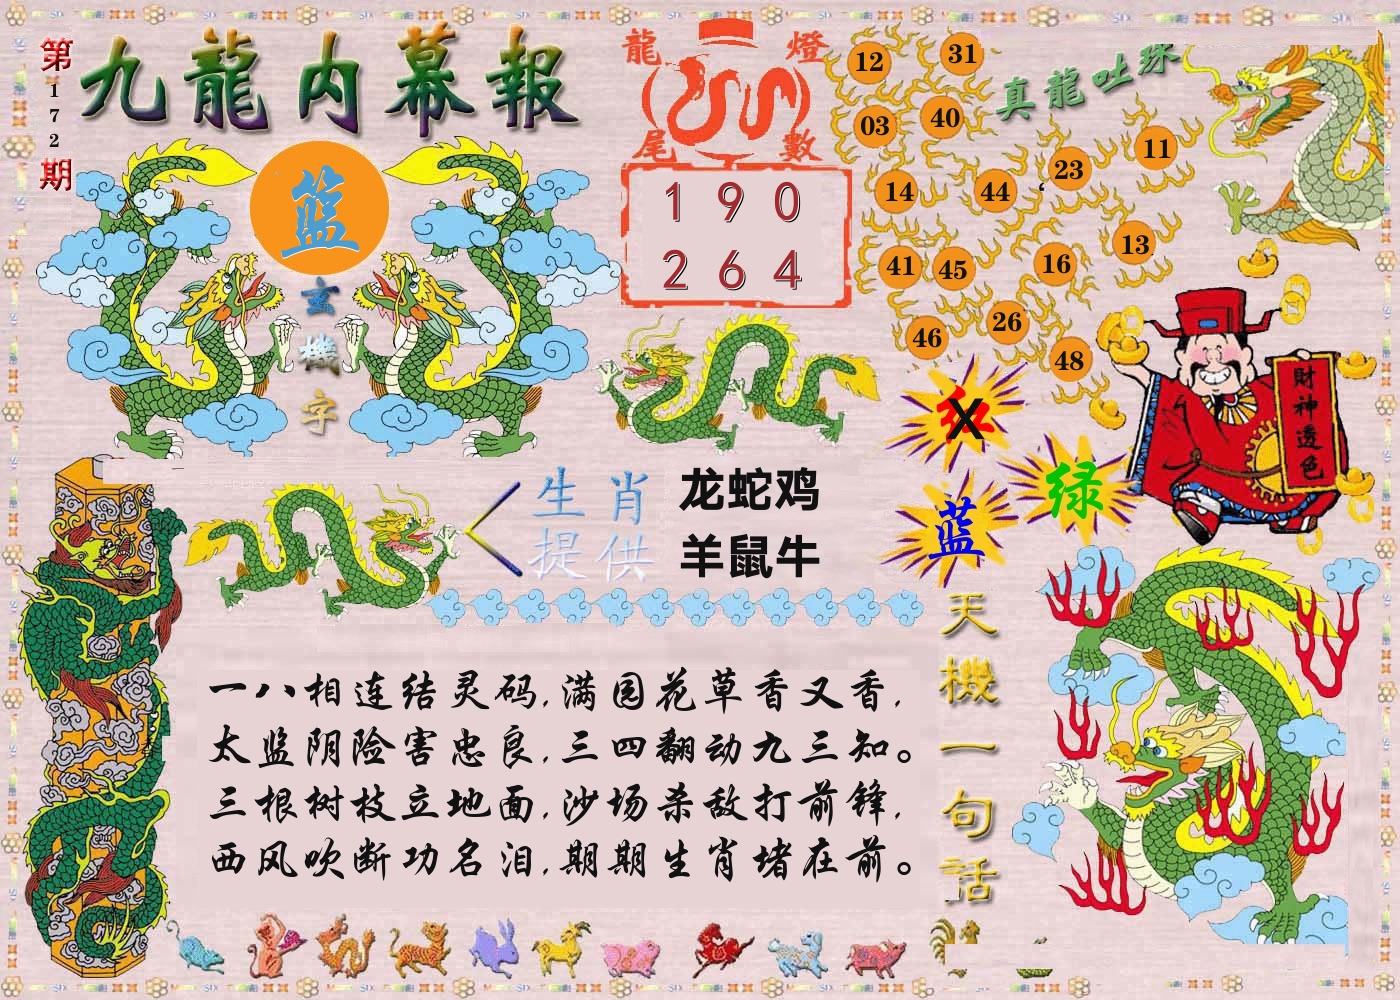 第172期
九龍内幕報
籃
玄機字
龍燈
尾數
190
264
真龍吐珠
12 31
03 40
14 44 23 11
41 45 16 13
46 26 48
財神透色
红 X
绿
蓝
生肖 龙蛇鸡
提供 羊鼠牛
天機一句話
一八相连结灵码,满园花草香又香,
太监阴险害忠良,三四翻动九三知。
三根树枝立地面,沙场杀敌打前锋,
西风吹断功名泪,期期生肖堵在前。